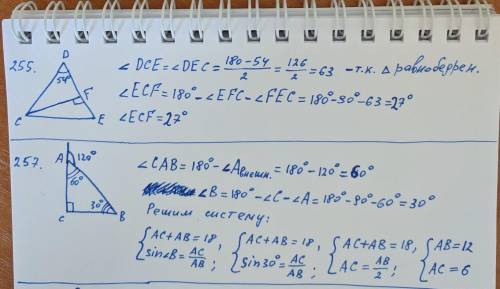 255.
D
54°
F
C
E
∠DCE = ∠DEC = (180-54)/2 = 126/2 = 63 - т.к. Δ равноберрен.
∠ECF = 180° - ∠EFC - ∠FEC = 180° - 90° - 63 = 27°
∠ECF = 27°
257.
A
120°
60°
C
30°
B
∠CAB = 180° - ∠Aвнешн. = 180° - 120° = 60°
∠B = 180° - ∠C - ∠A = 180° - 90° - 60° = 30°
Решим систему:
{AC + AB = 18, sin∠B = AC/AB; {AC + AB = 18, sin30° = AC/AB; {AC + AB = 18, AC = AB/2; {AB = 12 AC = 6